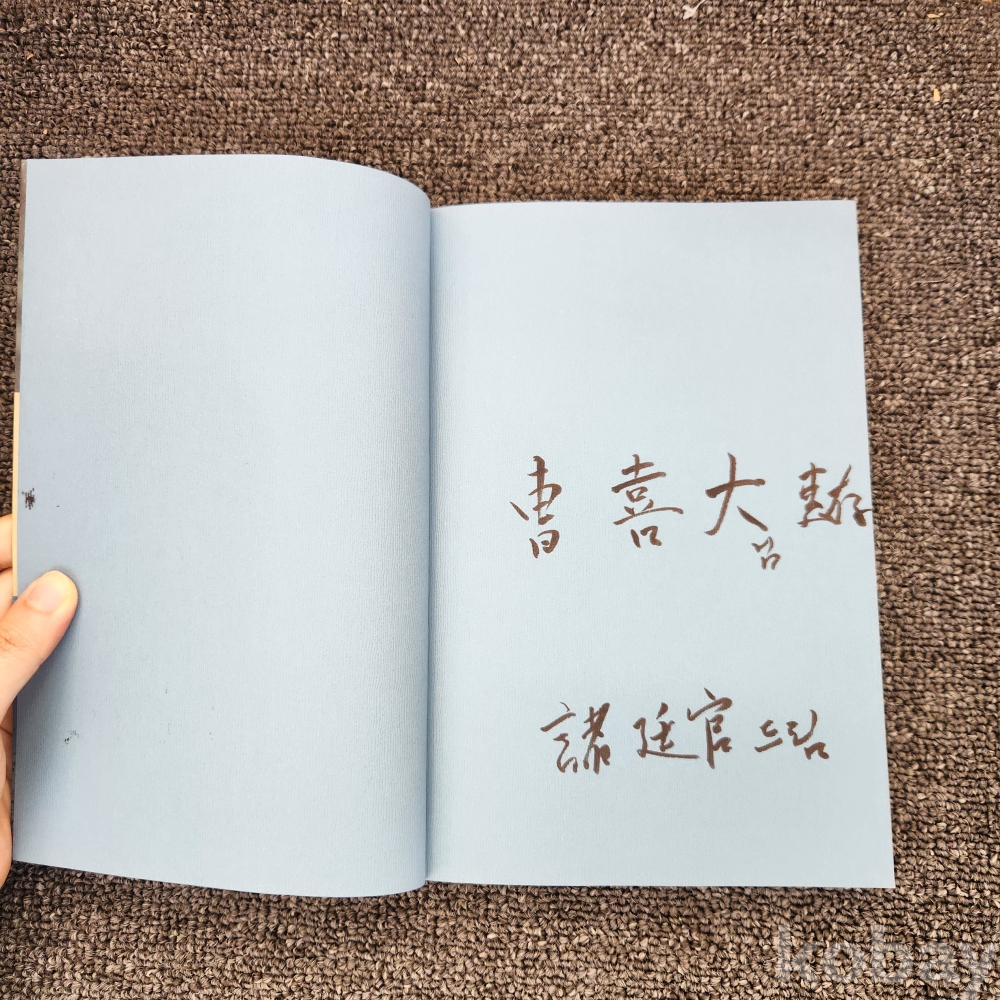 曺喜大 惠存
諸廷官 드림
kobay